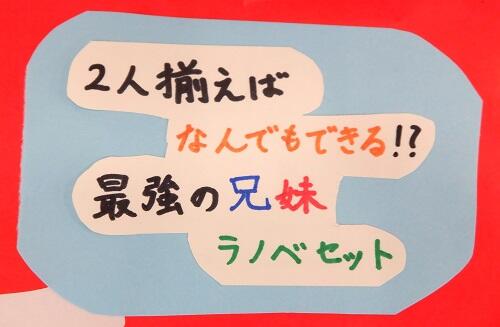 2人揃えば
なんでもできる!?
最強の兄妹
ラノベセット